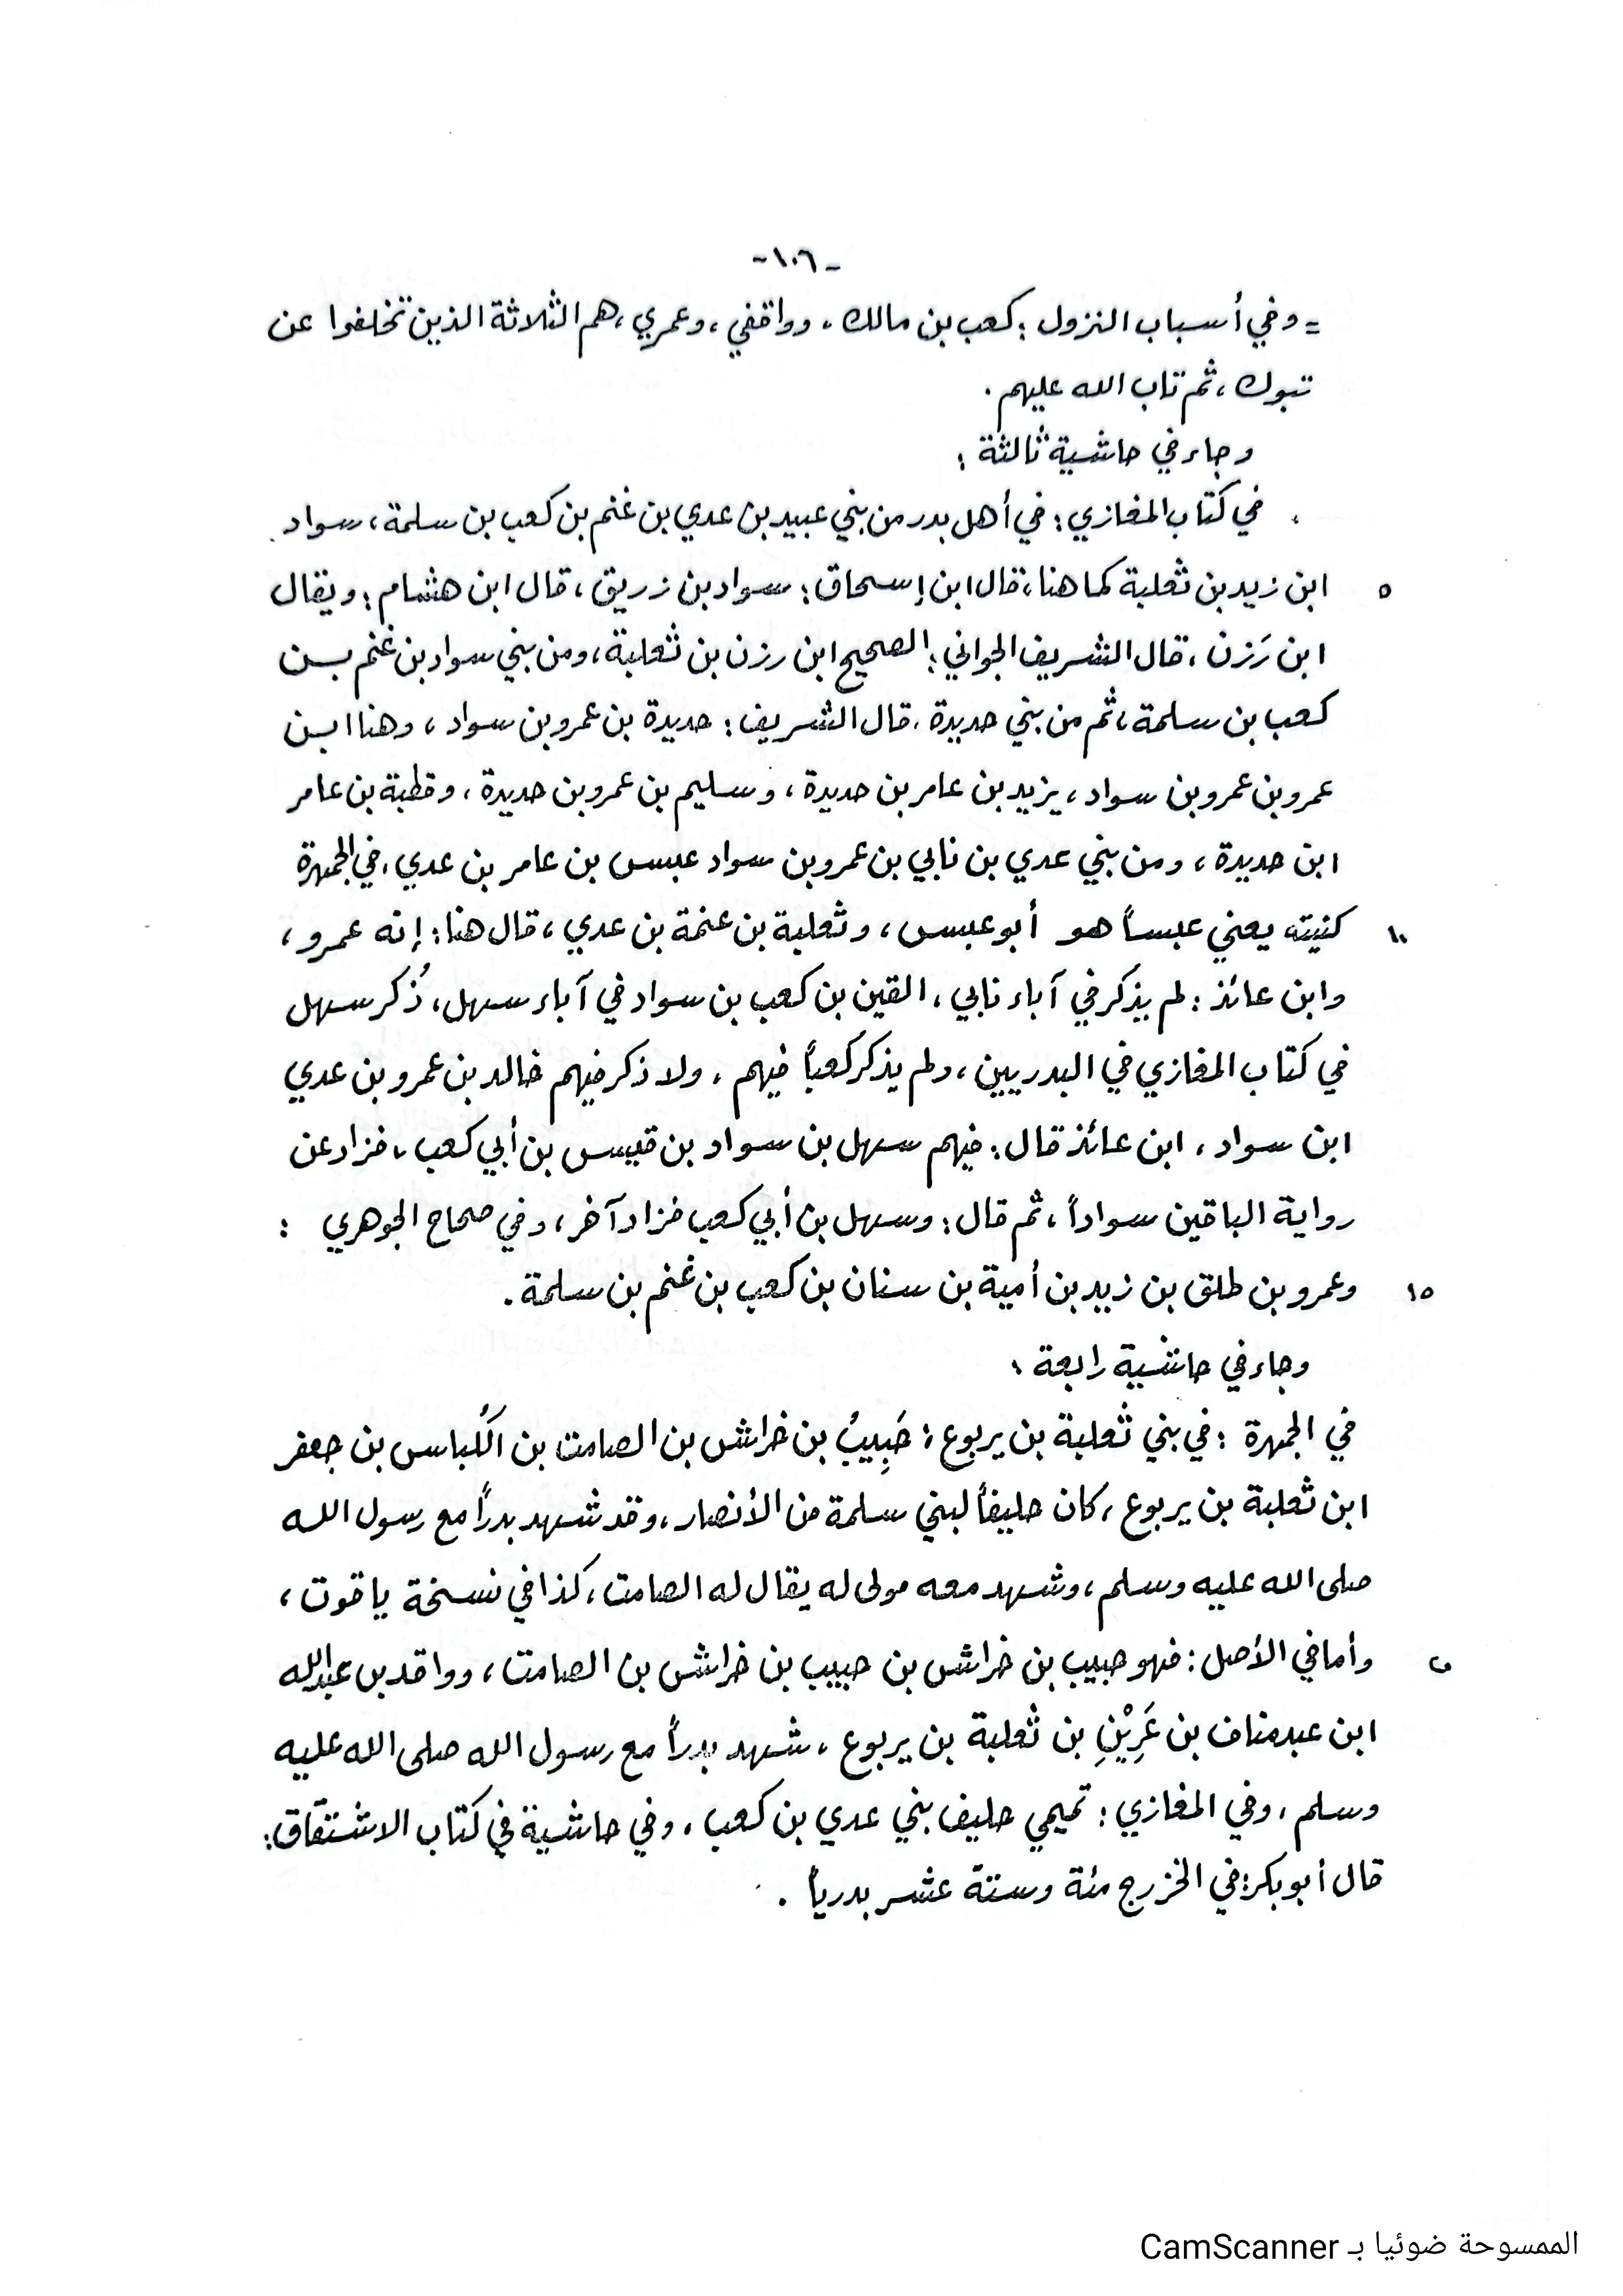 -١٠٦-
= وفي أسباب النزول : كعب بن مالك ، وواقفي ، وعمري ، هم الثلاثة الذين تخلفوا عن
تبوك ، ثم تاب الله عليهم .
وجاء في حاشية ثالثة :
في كتاب المغازي : في أهل بدر من بني عبيد بن عدي بن غنم بن كعب بن سلمة ، سواد
٥ ابن زيد بن ثعلبة كما هنا ، قال ابن إسحاق : سواد بن زريق ، قال ابن هشام : ويقال
ابن رَزن ، قال الشريف الجواني : الصحيح ابن رزن بن ثعلبة ، ومن بني سواد بن غنم بـن
كعب بن سلمة ، ثم من بني حديدة . قال الشريف : حديدة بن عمرو بن سواد ، وهنا ابـن
عمرو بن عمرو بن سواد ، يزيد بن عامر بن حديدة ، وسليم بن عمرو بن حديدة ، وقطبة بن عامر
ابن حديدة ، ومن بني عدي بن نابي بن عمرو بن سواد عبس بن عامر بن عدي ، في الجمهرة
١٠ كنيته يعني عبساً هو أبو عبس ، وثعلبة بن عنمة بن عدي ، قال هنا : إنه عمرو ،
وابن عائذ : لم يذكر في آباء نابي ، القين بن كعب بن سواد في آباء سهل ، ذُكر سهل
في كتاب المغازي في البدريين ، ولم يذكر كعباً فيهم ، ولا ذكر فيهم خالد بن عمرو بن عدي
ابن سواد ، ابن عائذ قال : فيهم سهل بن سواد بن قيس بن أبي كعب ، فزاد عن
رواية الباقين سواداً ، ثم قال : وسهل بن أبي كعب فزاد آخر ، وفي صحاح الجوهري :
١٥ وعمرو بن طلق بن زيد بن أمية بن سنان بن كعب بن غنم بن سلمة .
وجاء في حاشية رابعة :
في الجمهرة : في بني ثعلبة بن يربوع : حَبِيبُ بن خراش بن الصامت بن الكُباس بن جعفر
ابن ثعلبة بن يربوع ، كان حليفاً لبني سلمة من الأنصار ، وقد شهد بدراً مع رسول الله
صلى الله عليه وسلم ، وشهد معه مولى له يقال له الصامت ، كذا في نسخة ياقوت ،
٢٠ وأما في الأصل : فهو حبيب بن خراش بن حبيب بن خراش بن الصامت ، وواقد بن عبدالله
ابن عبد مناف بن عَرِيْنِ بن ثعلبة بن يربوع ، شهد بدراً مع رسول الله صلى الله عليه
وسلم ، وفي المغازي : تميمي حليف بني عدي بن كعب ، وفي حاشية في كتاب الاشتقاق :
قال أبو بكر : في الخزرج مئة وستة عشر بدرياً .
الممسوحة ضوئيا بـ CamScanner